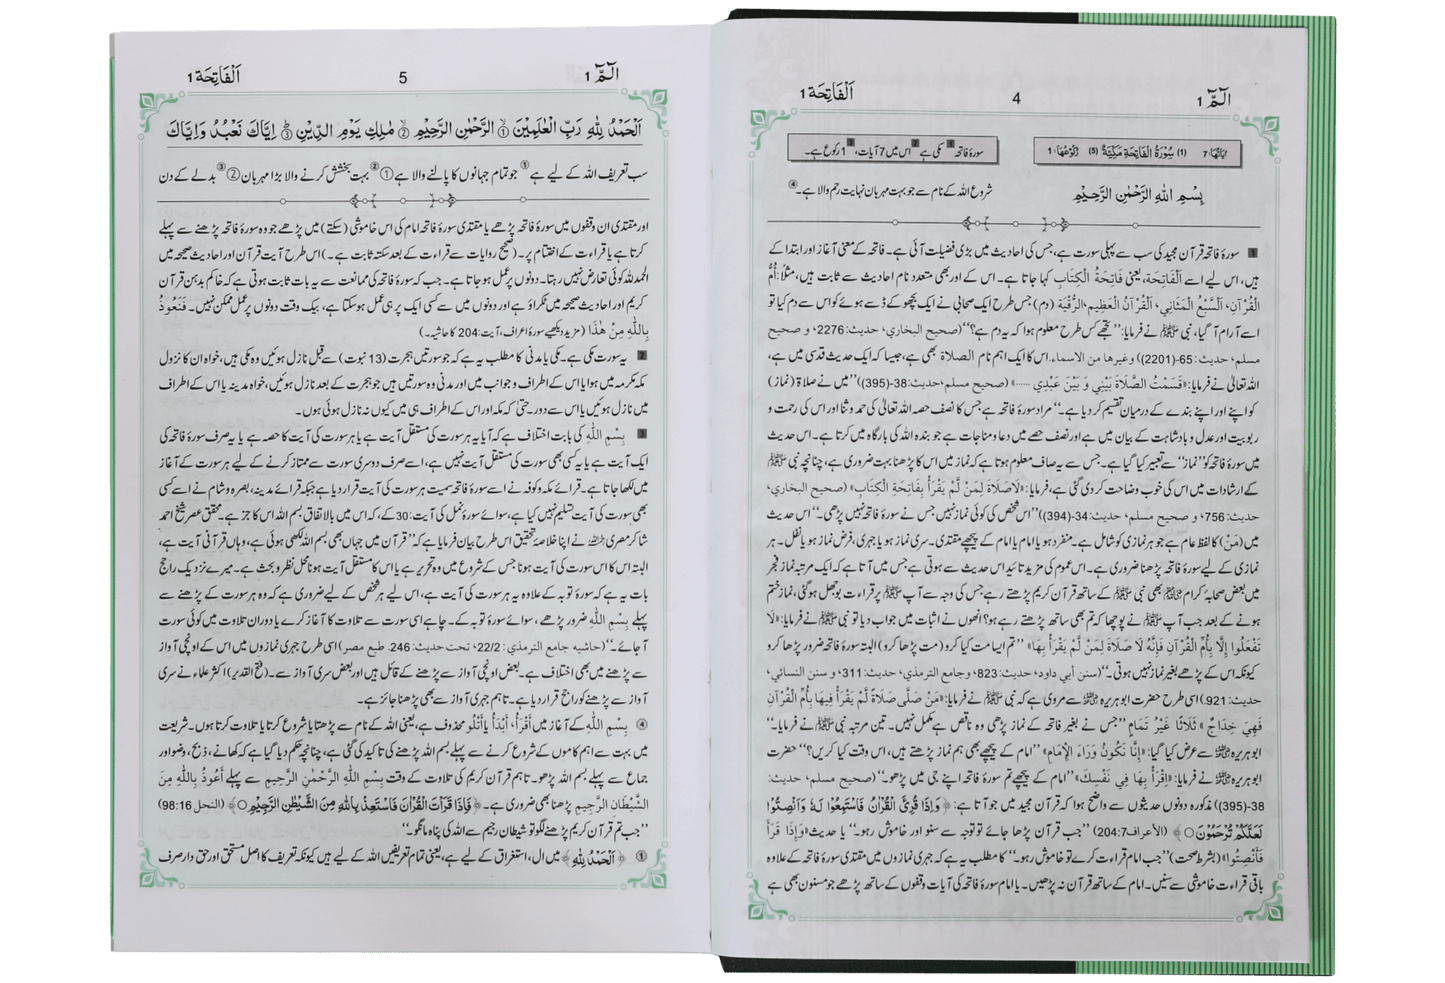 الٓمّٓ 1
4
اَلْفَاتِحَة 1
اٰیَاتُهَا: 7 (1) سُوْرَةُ الْفَاتِحَةِ مَكِّيَّةٌ (5) رُكُوْعُهَا: 1
سورۂ فاتحہ مکی ہے اس میں 7 آیات، 1 رکوع ہے۔
بِسْمِ اللّٰهِ الرَّحْمٰنِ الرَّحِيْمِ
شروع اللہ کے نام سے جو بہت مہربان نہایت رحم والا ہے۔④
1 سورۂ فاتحہ قرآن مجید کی سب سے پہلی سورت ہے، جس کی احادیث میں بڑی فضیلت آئی ہے۔ فاتحہ کے معنی آغاز اور ابتدا کے
ہیں، اس لیے اسے اَلْفَاتِحَة، یعنی فَاتِحَةُ الْكِتَابِ کہا جاتا ہے۔ اس کے اور بھی متعدد نام احادیث سے ثابت ہیں، مثلاً: أُمُّ
الْقُرْآنِ، اَلسَّبْعُ الْمَثَانِي، اَلْقُرْآنُ الْعَظِيم، اَلرُّقْيَة (دم) جس طرح ایک صحابی نے ایک بچھو کے ڈسے ہوئے کو اس سے دم کیا تو
اسے آرام آ گیا، نبی ﷺ نے فرمایا: ’’تجھے کس طرح معلوم ہوا کہ یہ دم ہے؟‘‘ (صحيح البخاري، حديث: 2276، و صحيح
مسلم، حديث: 65-(2201)) وغيرها من الاسماء. اس کا ایک اہم نام الصلاة بھی ہے، جیسا کہ ایک حدیث قدسی میں ہے،
اللہ تعالیٰ نے فرمایا: «قَسَمْتُ الصَّلَاةَ بَيْنِي وَ بَيْنَ عَبْدِي .....» (صحيح مسلم، حديث: 38-(395)) ’’میں نے صلاة (نماز)
کو اپنے اور اپنے بندے کے درمیان تقسیم کر دیا ہے۔‘‘ مراد سورۂ فاتحہ ہے جس کا نصف حصہ اللہ تعالیٰ کی حمد و ثنا اور اس کی رحمت و
ربوبیت اور عدل و بادشاہت کے بیان میں ہے اور نصف حصے میں دعا و مناجات ہے جو بندہ اللہ کی بارگاہ میں کرتا ہے۔ اس حدیث
میں سورۂ فاتحہ کو ’’نماز‘‘ سے تعبیر کیا گیا ہے۔ جس سے یہ صاف معلوم ہوتا ہے کہ نماز میں اس کا پڑھنا بہت ضروری ہے، چنانچہ نبی ﷺ
کے ارشادات میں اس کی خوب وضاحت کر دی گئی ہے، فرمایا: «لَا صَلَاةَ لِمَنْ لَّمْ يَقْرَأْ بِفَاتِحَةِ الْكِتَابِ» (صحيح البخاري،
حديث: 756، و صحيح مسلم، حديث: 34-(394)) ’’اس شخص کی کوئی نماز نہیں جس نے سورۂ فاتحہ نہیں پڑھی۔‘‘ اس حدیث
میں (مَنْ) کا لفظ عام ہے جو ہر نمازی کو شامل ہے۔ منفرد ہو یا امام یا امام کے پیچھے مقتدی۔ سری نماز ہو یا جہری، فرض نماز ہو یا نفل۔ ہر
نمازی کے لیے سورۂ فاتحہ پڑھنا ضروری ہے۔ اس عموم کی مزید تائید اس حدیث سے ہوتی ہے جس میں آتا ہے کہ ایک مرتبہ نماز فجر
میں بعض صحابۂ کرام بھی نبی ﷺ کے ساتھ قرآن کریم پڑھتے رہے جس کی وجہ سے آپ ﷺ پر قراءت بوجھل ہو گئی، نماز ختم
ہونے کے بعد جب آپ ﷺ نے پوچھا کہ تم بھی ساتھ پڑھتے رہے ہو؟ انھوں نے اثبات میں جواب دیا تو نبی ﷺ نے فرمایا: «لَا
تَفْعَلُوا إِلَّا بِأُمِّ الْقُرْآنِ فَإِنَّهُ لَا صَلَاةَ لِمَنْ لَّمْ يَقْرَأْ بِهَا» ’’تم ایسا مت کیا کرو (مت پڑھا کرو) البتہ سورۂ فاتحہ ضرور پڑھا کرو
کیونکہ اس کے پڑھے بغیر نماز نہیں ہوتی۔‘‘ (سنن أبي داود، حديث: 823، وجامع الترمذي، حديث: 311، و سنن النسائي،
حديث: 921) اسی طرح حضرت ابوہریرہ سے مروی ہے کہ نبی ﷺ نے فرمایا: «مَنْ صَلَّى صَلَاةً لَّمْ يَقْرَأْ فِيهَا بِأُمِّ الْقُرْآنِ
فَهِيَ خِدَاجٌ» ثَلَاثًا غَيْرُ تَمَامٍ‘‘ ’’جس نے بغیر فاتحہ کے نماز پڑھی وہ ناقص ہے مکمل نہیں۔ تین مرتبہ نبی ﷺ نے فرمایا۔‘‘
ابوہریرہ سے عرض کیا گیا: «إِنَّا نَكُونُ وَرَاءَ الْإِمَامِ» ’’امام کے پیچھے بھی ہم نماز پڑھتے ہیں، اس وقت کیا کریں؟‘‘ حضرت
ابوہریرہ نے فرمایا: «اِقْرَأْ بِهَا فِي نَفْسِكَ» ’’امام کے پیچھے تم سورۂ فاتحہ اپنے جی میں پڑھو۔‘‘ (صحيح مسلم، حديث:
38-(395)) مذکورہ دونوں حدیثوں سے واضح ہوا کہ قرآن مجید میں جو آتا ہے: ﴿وَاِذَا قُرِئَ الْقُرْاٰنُ فَاسْتَمِعُوْا لَهٗ وَاَنْصِتُوْا
لَعَلَّكُمْ تُرْحَمُوْنَ﴾ (الأعراف 204:7) ’’جب قرآن پڑھا جائے تو توجہ سے سنو اور خاموش رہو۔‘‘ یا حدیث «وَإِذَا قَرَأَ
فَأَنْصِتُوا» (بشرط صحت) ’’جب امام قراءت کرے تو خاموش رہو۔‘‘ کا مطلب یہ ہے کہ جہری نمازوں میں مقتدی سورۂ فاتحہ کے علاوہ
باقی قراءت خاموشی سے سنیں۔ امام کے ساتھ قرآن نہ پڑھیں۔ یا امام سورۂ فاتحہ کی آیات وقفوں کے ساتھ پڑھے جو مسنون بھی ہے
الٓمّٓ 1
5
اَلْفَاتِحَة 1
اَلْحَمْدُ لِلّٰهِ رَبِّ الْعٰلَمِيْنَ ① الرَّحْمٰنِ الرَّحِيْمِ ② مٰلِكِ يَوْمِ الدِّيْنِ ③ اِيَّاكَ نَعْبُدُ وَاِيَّاكَ
سب تعریف اللہ کے لیے ہے① جو تمام جہانوں کا پالنے والا ہے①② بہت بخشش کرنے والا بڑا مہربان②③ بدلے کے دن
اور مقتدی ان وقفوں میں سورۂ فاتحہ پڑھے یا مقتدی سورۂ فاتحہ امام کی اس خاموشی (سکتے) میں پڑھے جو وہ سورۂ فاتحہ پڑھنے سے پہلے
کرتا ہے یا قراءت کے اختتام پر۔ (صحیح روایات سے قراءت کے بعد سکتہ ثابت ہے۔) اس طرح آیت قرآن اور احادیث صحیحہ میں
الحمدللہ کوئی تعارض نہیں رہتا۔ دونوں پر عمل ہو جاتا ہے۔ جب کہ سورۂ فاتحہ کی ممانعت سے یہ بات ثابت ہوتی ہے کہ خاکم بدہن قرآن
کریم اور احادیث صحیحہ میں ٹکراؤ ہے اور دونوں میں سے کسی ایک پر ہی عمل ہو سکتا ہے، بیک وقت دونوں پر عمل ممکن نہیں۔ فَنَعُوْذُ
بِاللّٰهِ مِنْ هٰذَا (مزید دیکھیے سورۂ اعراف، آیت: 204 کا حاشیہ۔)
2 یہ سورت مکی ہے۔ مکی یا مدنی کا مطلب یہ ہے کہ جو سورتیں ہجرت (13 نبوت) سے قبل نازل ہوئیں وہ مکی ہیں، خواہ ان کا نزول
مکہ مکرمہ میں ہوا یا اس کے اطراف و جوانب میں اور مدنی وہ سورتیں ہیں جو ہجرت کے بعد نازل ہوئیں، خواہ مدینہ یا اس کے اطراف
میں نازل ہوئیں یا اس سے دور۔ حتیٰ کہ مکہ اور اس کے اطراف ہی میں کیوں نہ نازل ہوئی ہوں۔
3 بِسْمِ اللّٰهِ کی بابت اختلاف ہے کہ آیا یہ ہر سورت کی مستقل آیت ہے یا ہر سورت کی آیت کا حصہ ہے یا یہ صرف سورۂ فاتحہ کی
ایک آیت ہے یا یہ کسی بھی سورت کی مستقل آیت نہیں ہے، اسے صرف دوسری سورت سے ممتاز کرنے کے لیے ہر سورت کے آغاز
میں لکھا جاتا ہے۔ قرائے مکہ و کوفہ نے اسے سورۂ فاتحہ سمیت ہر سورت کی آیت قرار دیا ہے جبکہ قرائے مدینہ، بصرہ و شام نے اسے کسی
بھی سورت کی آیت تسلیم نہیں کیا ہے، سوائے سورۂ نمل کی آیت: 30 کے، کہ اس میں بالاتفاق بسم اللہ اس کا جز ہے۔ محقق عصر شیخ احمد
شاکر مصری نے اپنا خلاصۂ تحقیق اس طرح بیان فرمایا ہے کہ ’’قرآن میں جہاں بھی بسم اللہ لکھی ہوئی ہے، وہاں قرآنی آیت ہے،
البتہ اس کا اس سورت کی آیت ہونا جس کے شروع میں وہ تحریر ہے یا اس کا مستقل آیت ہونا محل نظر و بحث ہے۔ میرے نزدیک راجح
بات یہ ہے کہ سورۂ توبہ کے علاوہ یہ ہر سورت کی آیت ہے، اس لیے ہر شخص کے لیے ضروری ہے کہ وہ ہر سورت کے پڑھنے سے
پہلے بِسْمِ اللّٰهِ ضرور پڑھے، سوائے سورۂ توبہ کے۔ چاہے اسی سورت سے تلاوت کا آغاز کرے یا دوران تلاوت میں کوئی سورت
آ جائے۔‘‘ (حاشیہ جامع الترمذي: 22/2، تحت حديث: 246، طبع مصر) اسی طرح جہری نمازوں میں اس کے اونچی آواز
سے پڑھنے میں بھی اختلاف ہے۔ بعض اونچی آواز سے پڑھنے کے قائل ہیں اور بعض سری آواز سے۔ (فتح القدیر) اکثر علماء نے سری
آواز سے پڑھنے کو راجح قرار دیا ہے۔ تاہم جہری آواز سے بھی پڑھنا جائز ہے۔
④ بِسْمِ اللّٰهِ کے آغاز میں أَقْرَأُ، أَبْدَأُ یا أَتْلُو محذوف ہے، یعنی اللہ کے نام سے پڑھتا یا شروع کرتا یا تلاوت کرتا ہوں۔ شریعت
میں بہت سے اہم کاموں کے شروع کرنے سے پہلے بسم اللہ پڑھنے کی تاکید کی گئی ہے، چنانچہ حکم دیا گیا ہے کہ کھانے، ذبح، وضو اور
جماع سے پہلے بسم اللہ پڑھو۔ تاہم قرآن کریم کی تلاوت کے وقت بِسْمِ اللّٰهِ الرَّحْمٰنِ الرَّحِيمِ سے پہلے أَعُوذُ بِاللّٰهِ مِنَ
الشَّيْطَانِ الرَّجِيمِ پڑھنا بھی ضروری ہے۔ ﴿فَاِذَا قَرَاْتَ الْقُرْاٰنَ فَاسْتَعِذْ بِاللّٰهِ مِنَ الشَّيْطٰنِ الرَّجِيْمِ﴾ (النحل 98:16)
’’جب تم قرآن کریم پڑھنے لگو تو شیطان رجیم سے اللہ کی پناہ مانگو۔‘‘
① ﴿اَلْحَمْدُ لِلّٰهِ﴾ میں ال، استغراق کے لیے ہے، یعنی تمام تعریفیں اللہ کے لیے ہیں کیونکہ تعریف کا اصل مستحق اور حق دار صرف